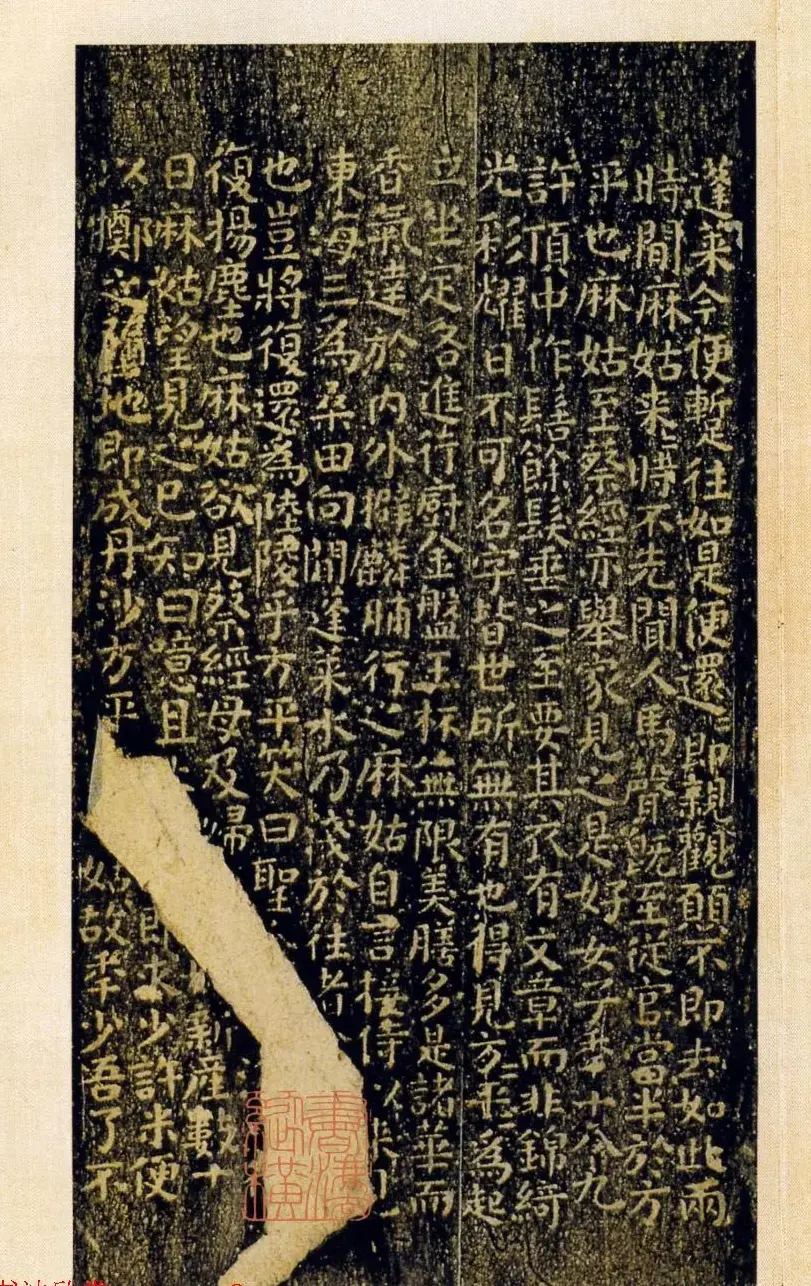 蓬莱今便蹔往如是便還還即親觀願不即去如此兩
時間麻姑来来時不先聞人馬聲既至從官當半於方
平也麻姑至蔡經亦舉家見之是好女子年十八九
許頂中作髻餘髮垂之至要其衣有文章而非錦綺
光彩耀日不可名字皆世所無有也得見方平方平為起
立坐定各進行廚金盤玉杯無限美膳多是諸華而
香氣達於内外擗麟脯行之麻姑自言接待以来見
東海三為桑田向間蓬莱水乃淺於往者
也豈將復還為陸陵乎方平笑曰聖
復揚塵也麻姑欲見蔡經母及婦 新産數十
日麻姑望見之已知曰噫且 即求少許米便
以擲之墮地即成丹沙方平 姑故年少吾了不
書法
縱橫